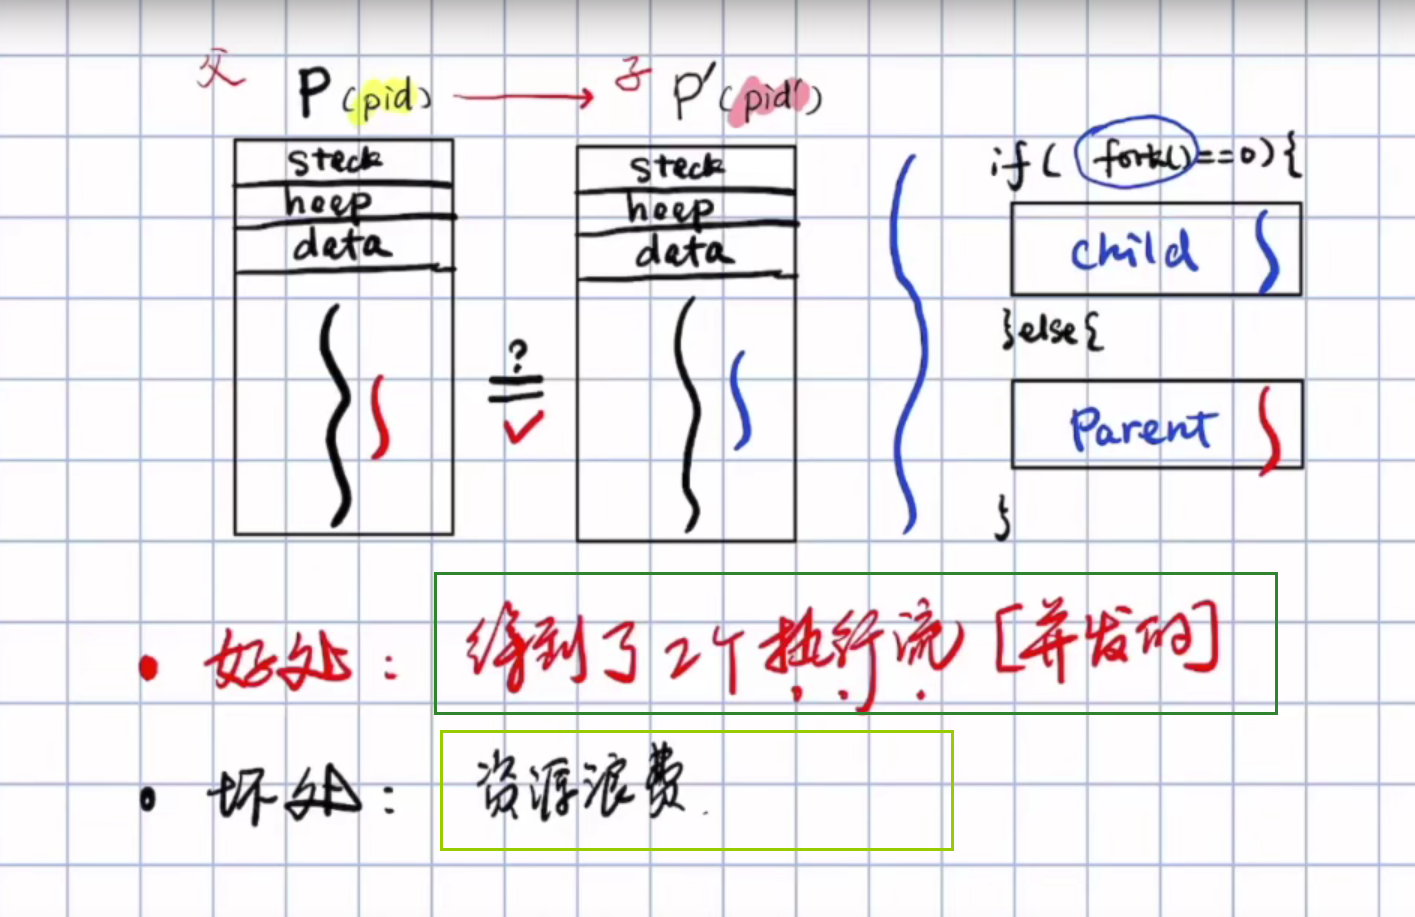 父 P (pid) 子 P′(pid′)
stack
heap
data
stack
heap
data
?
if( fork()==0){
child
}else{
Parent
}
• 好处: 得到了2个执行流 [并发的]
• 坏处: 资源浪费.